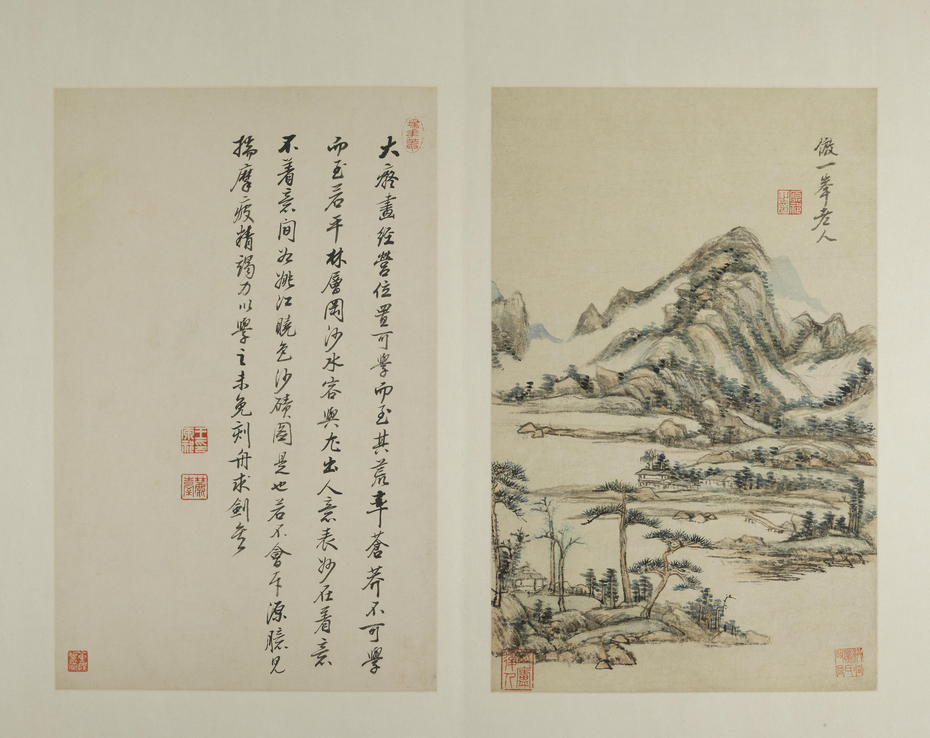 倣一峯老人
大癡畫經營位置可學而至其荒率蒼莽不可學
而至若平林層岡沙水容與尤出人意表妙在着意
不着意間如姚江曉色沙磧圖是也若不會本源臆見
揣摩疲精竭力以學之未免刻舟求劍矣
王印原祁
麓臺